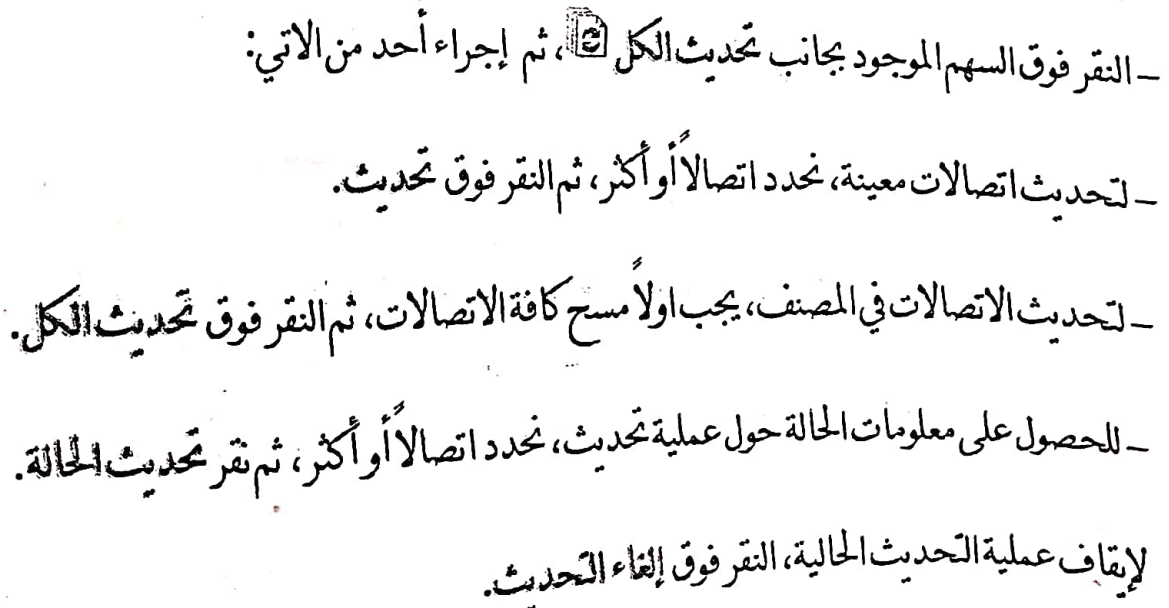 - النقر فوق السهم الموجود بجانب تحديث الكل، ثم إجراء أحد من الاتي:
- لتحديث اتصالات معينة، نحدد اتصالاً أو أكثر، ثم النقر فوق تحديث.
- لتحديث الاتصالات في المصنف، يجب اولاً مسح كافة الاتصالات، ثم النقر فوق تحديث الكل.
- للحصول على معلومات الحالة حول عملية تحديث، نحدد اتصالاً أو أكثر، ثم نقر تحديث الحالة.
لإيقاف عملية التحديث الحالية، النقر فوق إلغاء التحديث.